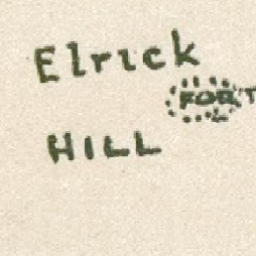 Elrick
FORT
HILL